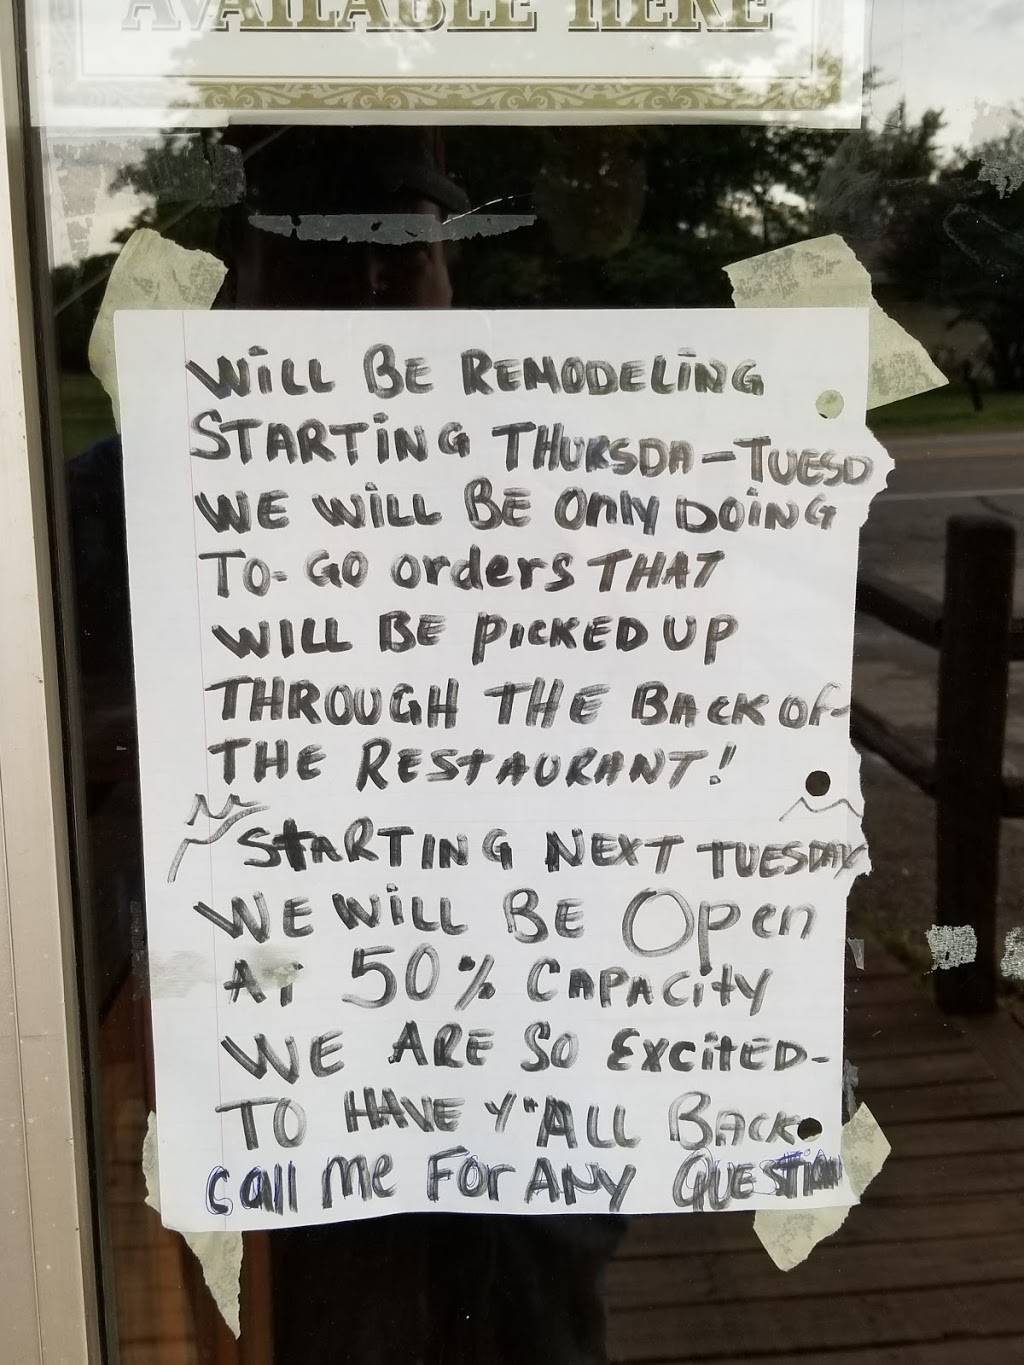 AVAILABLE HERE
WiLL BE REMODELiNG
STARTiNG THURSDA-TUESD
WE WiLL BE Only DOiNG
TO-GO orders THAT
WILL BE PiCKED UP
THROUGH THE BACK OF
THE RESTAURANT!
STARTING NEXT TUESDAY
WE WiLL BE Open
AT 50% CAPACitY
WE ARE SO EXCitED-
TO HAVE Y"ALL BACK
CAll Me FOR ANY QUESTION